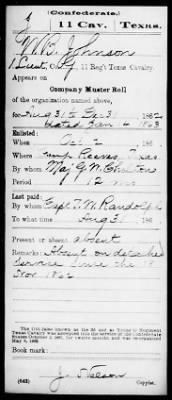 (Confederate.)
J 11 Cav. Texas.
W B Johnson
1 Lieut, Co. J, 11 Reg't Texas Cavalry.
Appears on
Company Muster Roll
of the organization named above,
for Aug 31 to Dec 31, 1862
dated Jan 4 1863
Enlisted:
When Oct 2, 186
Where Camp Reeves, Texas
By whom Maj G. N. Chilton
Period 12 mos
Last paid:
By whom Capt T. M. Randolph
To what time Aug 31, 186
Present or absent absent
Remarks: Absent on detached
service since the
Nov 1862
The 11th (also known as the 3d and as Young's) Regiment
Texas Cavalry was accepted into the service of the Confederate
States October 2, 1861, for twelve months, and was re-organized
May 8, 1862.
Book mark:
(642)
J. Nelson
Copyist.